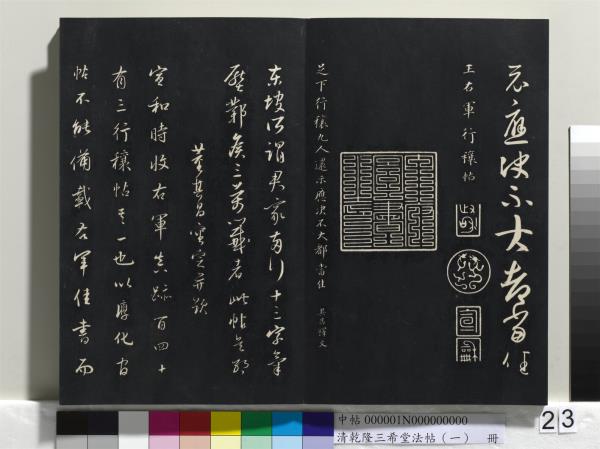 示應決不大都當佳
王右軍行穰帖
政和
宣和
足下行穰九人還示應決不大都當佳 其昌釋文
東坡所謂君家兩行十三字氣
壓鄴侯三萬籤者此帖是耶
董其昌審定并跋
宣和時收右軍真跡百四十
有三行穰帖其一也以淳化官
帖不能備載右軍佳書而
中帖 000001N000000000
清乾隆三希堂法帖（一） 冊
23